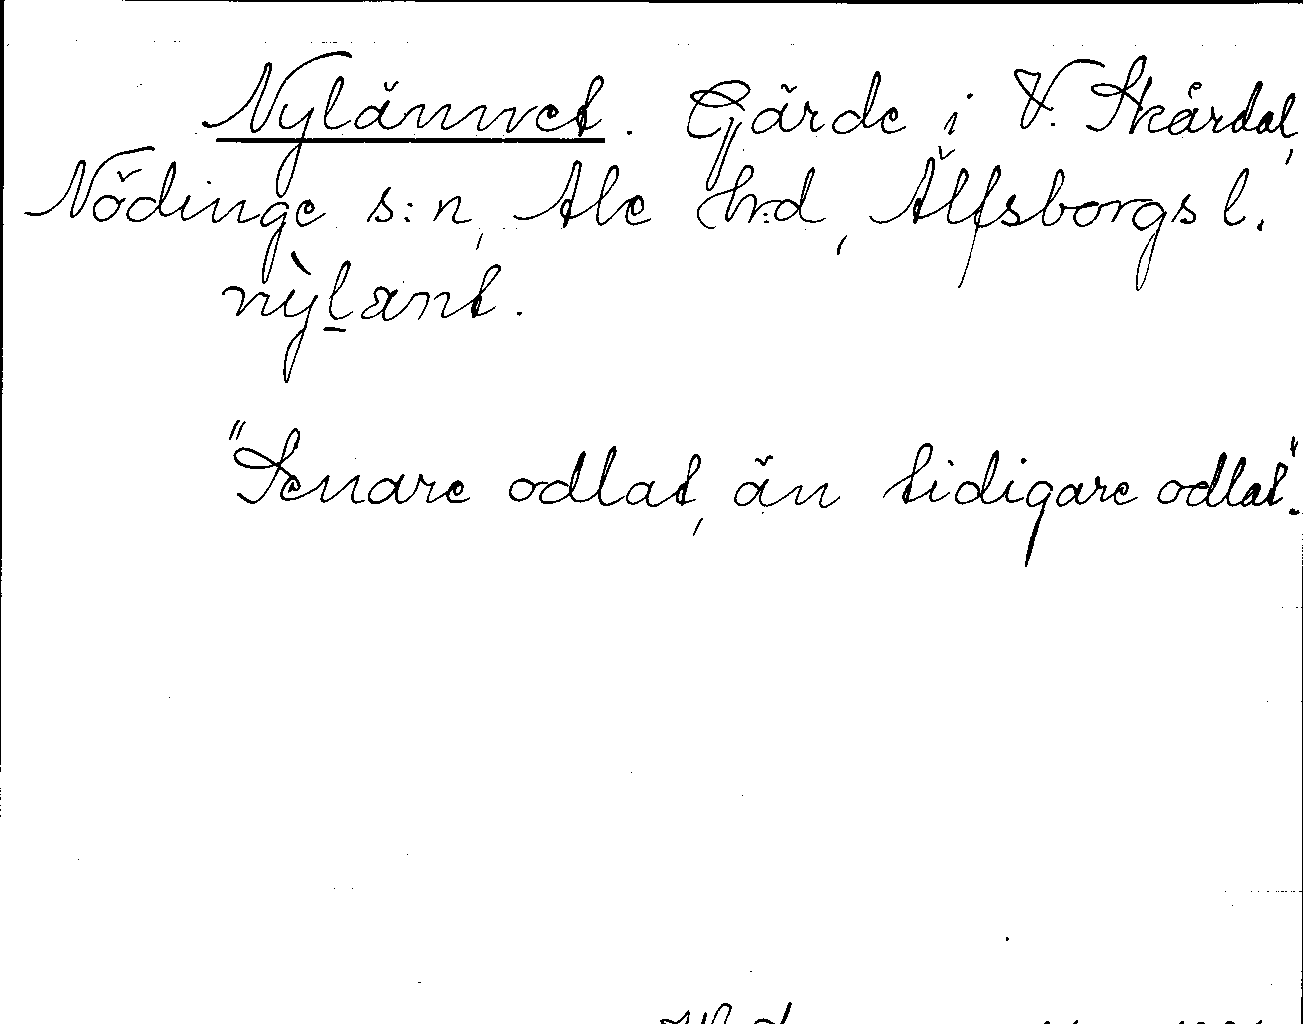 Nylännet. Gärde i V. Skårdal,
Nödinge s:n, Ale hrd, Älfsborgs l.
nỳlænt.
"Senare odlat, än tidigare odlat".